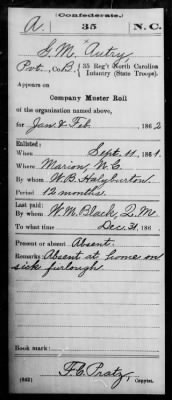 (Confederate.)
A. 35 N.C.
G. M. Autry
Pvt., Co. B, 35 Reg't North Carolina
Infantry (State Troops).
Appears on
Company Muster Roll
of the organization named above,
for Jan & Feb, 1862
Enlisted:
When Sept. 11, 1861.
Where Marion N.C.
By whom W. B. Halyburton.
Period 12 months.
Last paid:
By whom W. M. Black, Q.M.
To what time Dec. 31, 186
Present or absent Absent.
Remarks: Absent at home on
sick furlough.
Book mark:
(642) F. C. Pratz, Copyist.